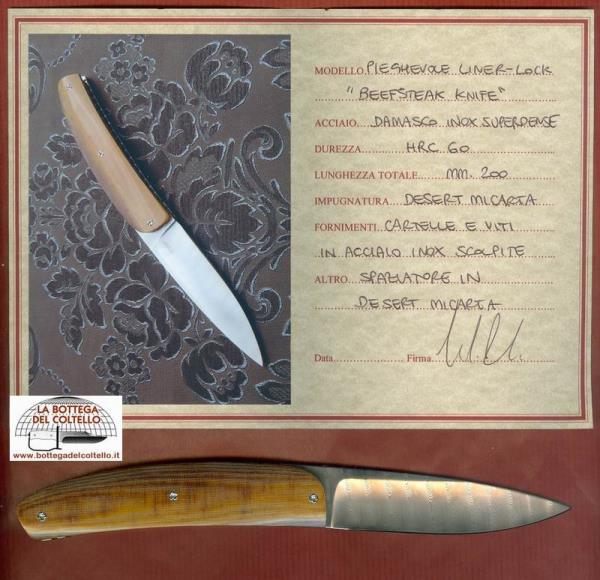 MODELLO PIEGHEVOLE LINER-LOCK
"BEEFSTEAK KNIFE"
ACCIAIO DAMASCO INOX SUPERDENSE
DUREZZA HRC 60
LUNGHEZZA TOTALE MM. 200
IMPUGNATURA DESERT MICARTA
FORNIMENTI CARTELLE E VITI
IN ACCIAIO INOX SCOLPITE
ALTRO SPAZIATORE IN
DESERT MICARTA
Data Firma
LA BOTTEGA
DEL COLTELLO
www.bottegadelcoltello.it